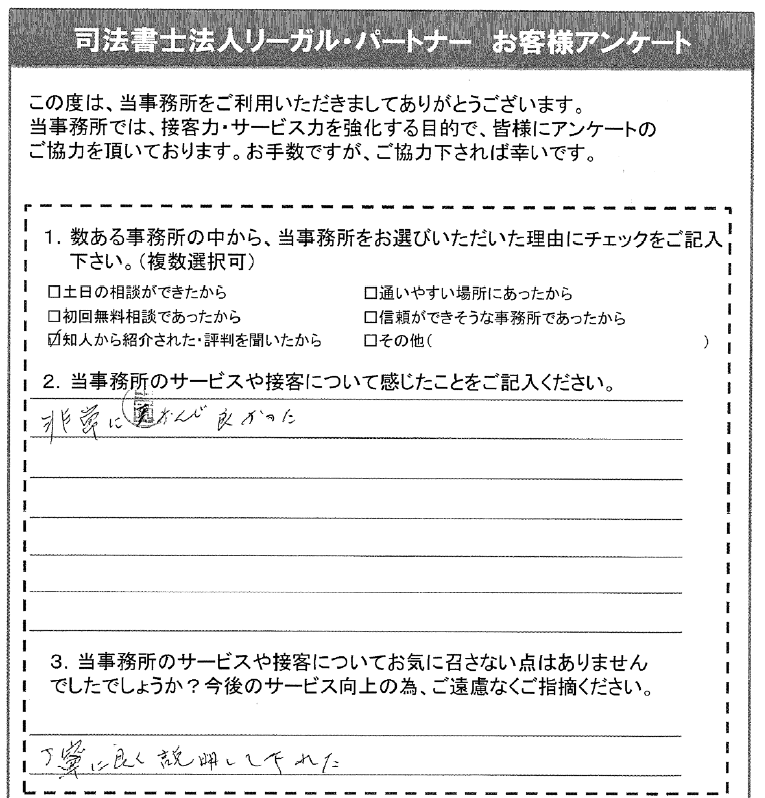 司法書士法人リーガル・パートナー お客様アンケート
この度は、当事務所をご利用いただきましてありがとうございます。
当事務所では、接客力・サービス力を強化する目的で、皆様にアンケートの
ご協力を頂いております。お手数ですが、ご協力下されば幸いです。
1. 数ある事務所の中から、当事務所をお選びいただいた理由にチェックをご記入
下さい。(複数選択可)
□土日の相談ができたから □通いやすい場所にあったから
□初回無料相談であったから □信頼ができそうな事務所であったから
☑知人から紹介された・評判を聞いたから □その他( )
2. 当事務所のサービスや接客について感じたことをご記入ください。
非常に かんじ良かった
3. 当事務所のサービスや接客についてお気に召さない点はありません
でしたでしょうか?今後のサービス向上の為、ご遠慮なくご指摘ください。
丁寧に良く説明して下れた